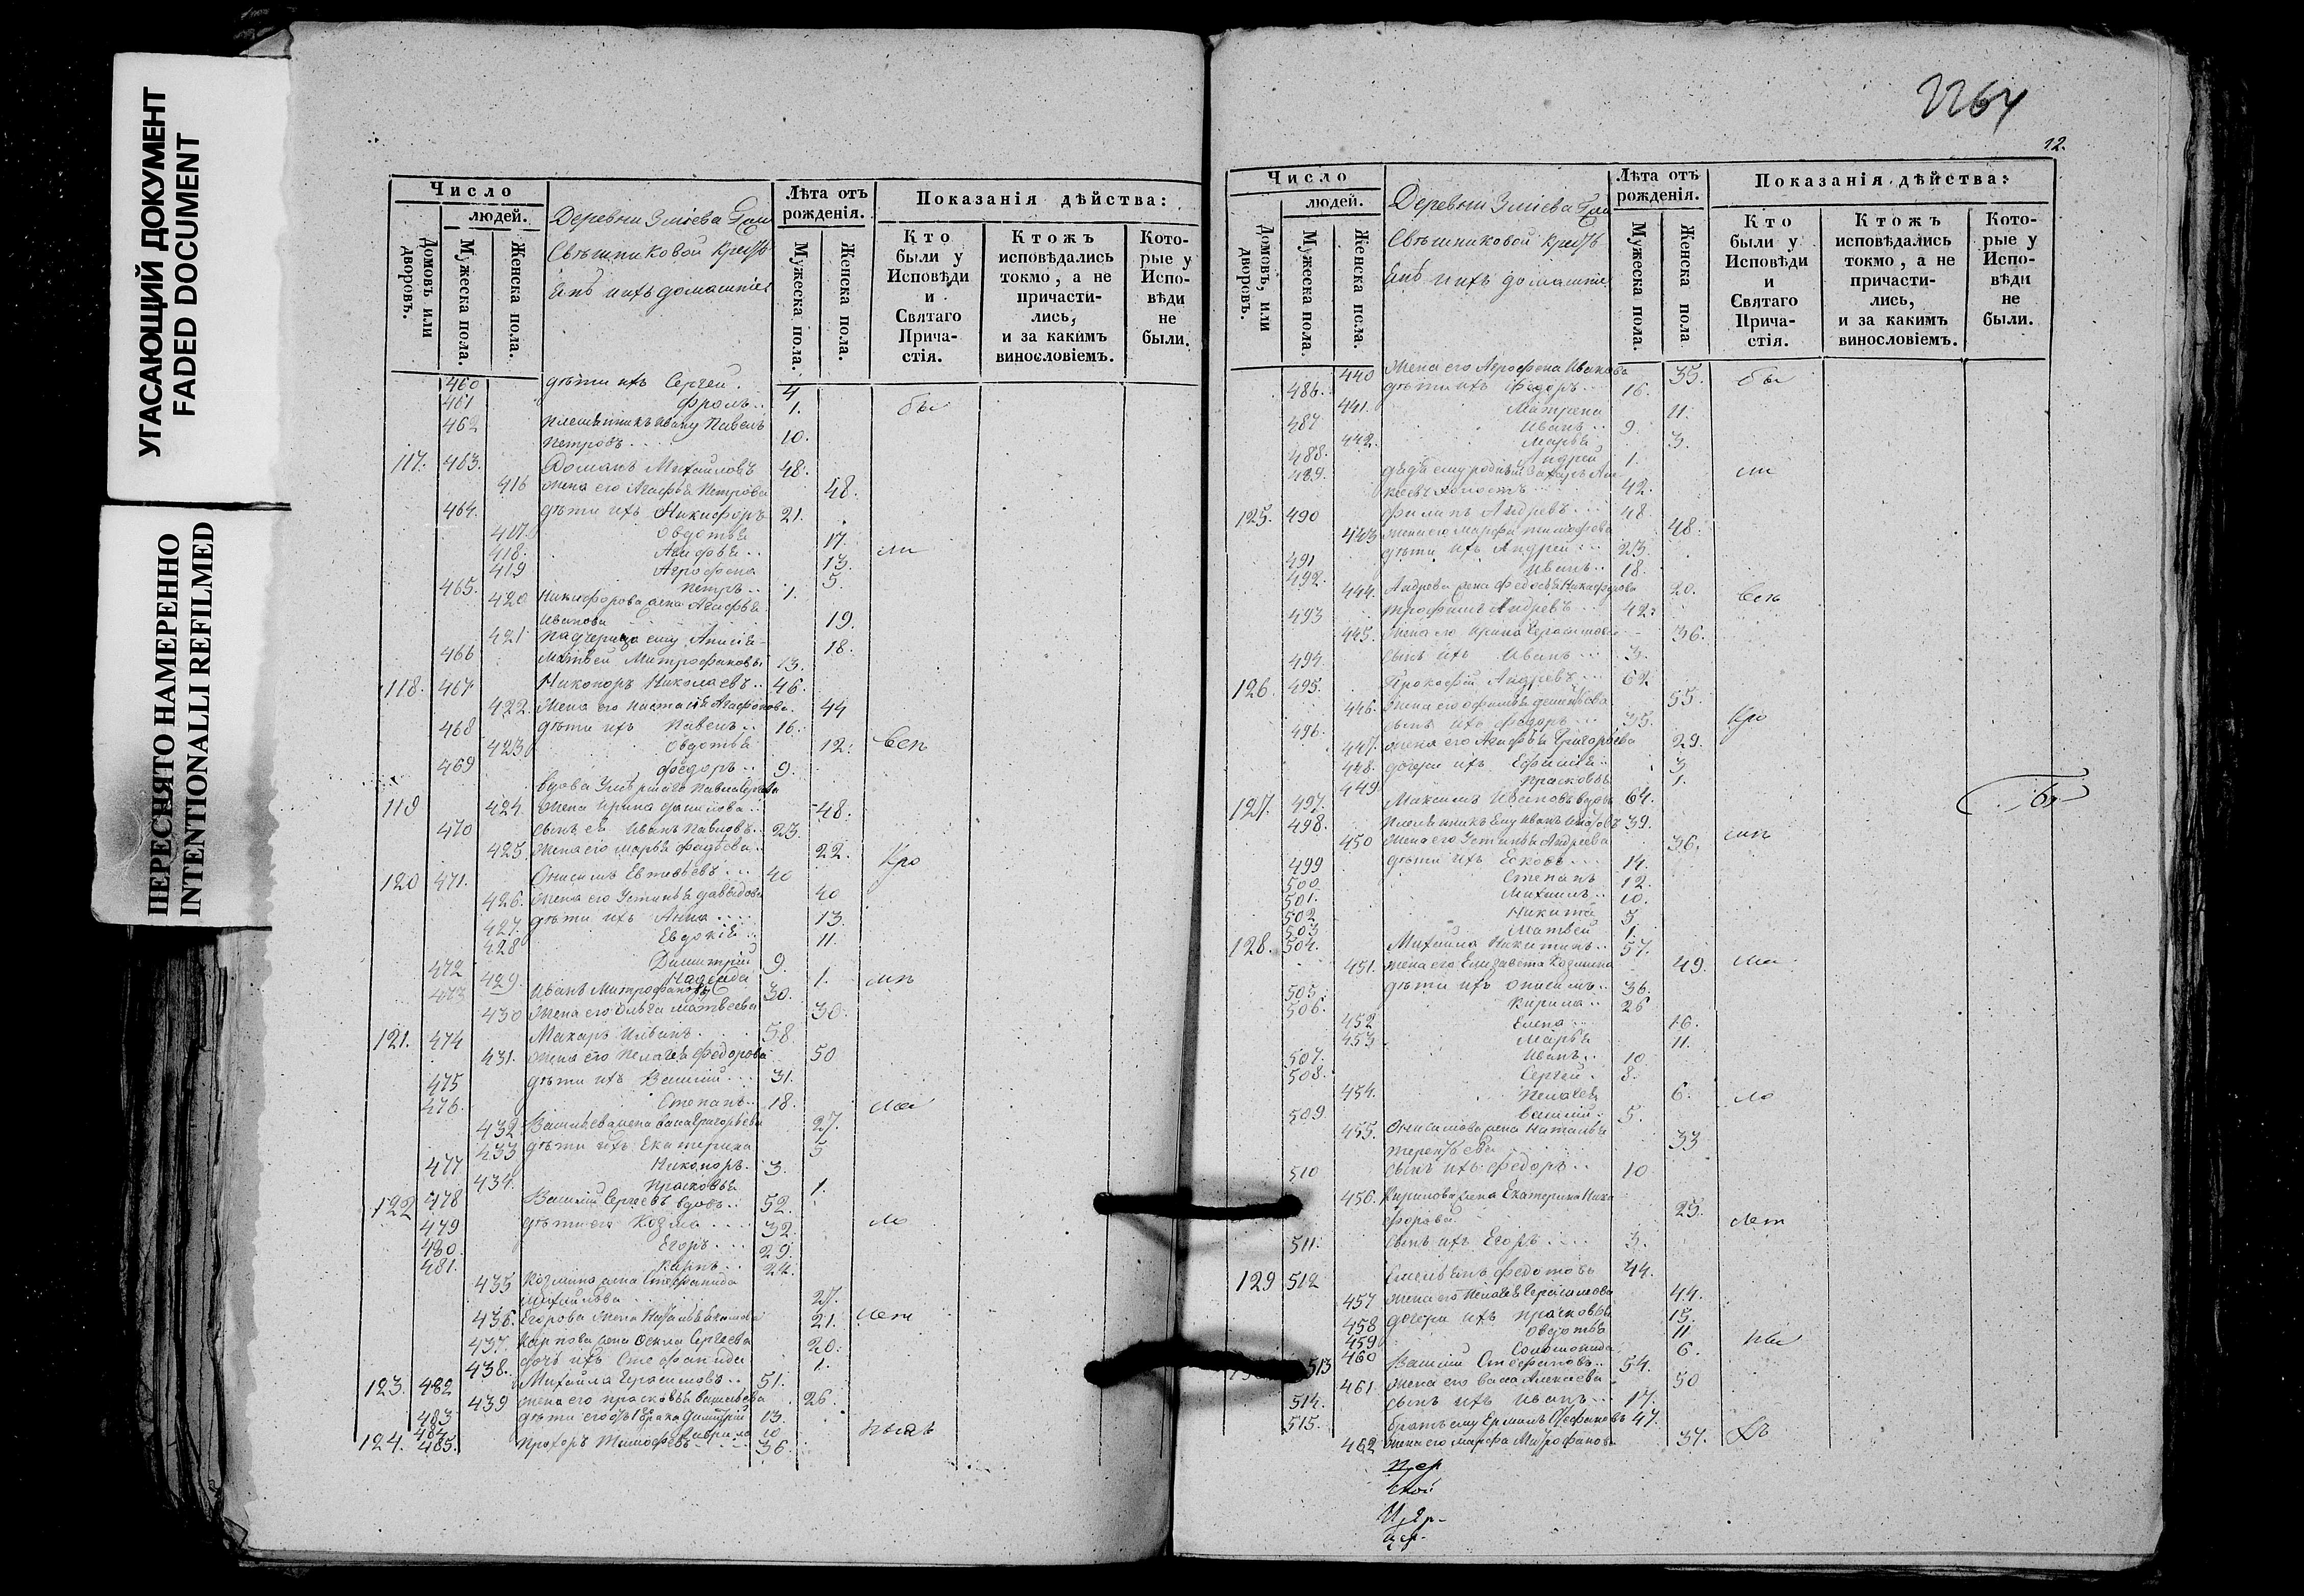 УГАСАЮЩИЙ ДОКУМЕНТ
FADED DOCUMENT
ПЕРЕСНЯТО НАМЕРЕННО
INTENTIONALLI REFILMED
Число
людей.
Домовъ или дворовъ.
Мужеска пола.
Женска пола.
Деревни Зміева
Свѣшниковой
их домашніе
Лѣта отъ рожденія.
Мужеска пола.
Женска пола.
Показанія дѣйства:
Кто были у Исповѣди и Святаго Прича-стія.
Ктожъ исповѣдались токмо, а не причасти-лись, и за какимъ винословіемъ.
Кото-рые у Испо-вѣди не были.
460 дѣти ихъ Сергей 4
461 Фролъ 1. бы
462 племянникъ Ивану Павелъ
Петровъ 10.
117. 463. Романъ Михайловъ 48.
416 жена его Агафья Петрова 48.
464. дѣти ихъ Никифоръ 21.
417. Овдотья 17.
418. Агафья 13. ли
419 Агрофена 5.
465. Петръ 1.
420 Никифорова жена Агафья
Иванова 19.
421 падчерица ему Анисія 18.
466 Матвей Митрофановъ 13.
118. 467 Никоноръ Николаевъ 46.
422. Жена его Настасія Агафонова. 44
468 дѣти ихъ Павелъ 16.
423 Овдотья 12. Всп
469 Федоръ 9.
Вдова Умершаго Павла
119 424. Жена Ирина Данилова 48.
470 сынъ ея Иванъ Павловъ 23.
425 Жена его Марья Фадѣева 22. Кро
120 471. Онисимъ Евтеѣевъ 40
426. Жена его Устинья Давыдова 40
427. дѣти ихъ Анна 13.
428 Евдокія 11.
472 Димитрій 9.
429. Надежда 1. мп
473 Иванъ Митрофановъ 30.
430 Жена его Ольга Матвеева 30.
121. 474 Макаръ Ильинъ 58
431. Жена его Пелагея Федорова 50
475 дѣти ихъ Василій 31.
476. Степанъ 18.
432. Васильева жена Григорьева 27.
433 дѣти ихъ Екатерина 5
477 Никоноръ 3.
434. Прасковья 1.
122 478 Василій Сергеевъ вдовъ 52.
479 дѣти его Козма 32. ло
480. Егоръ 29.
481. Карпъ 24.
435 Козмина жена Стефанида
Михайлова 27.
436. Егорова Жена 21. лет
437. Карпова жена Фекла Сергеева 20.
438. дочь ихъ Стефанида 1.
123. 482 Михайла Герасимовъ 51.
439 Жена его Прасковья Васильева 26.
483 дѣти его Димитрій 13.
484 Гаврило 10
124. 485. Прохоръ Тимофеевъ 36.
12.
Число
людей.
Домовъ, или дворовъ.
Мужеска пола.
Женска пола.
Деревни Зміева
Свѣшниковой
их домашніе
Лѣта отъ рожденія.
Мужеска пола.
Женска пола
Показанія дѣйства:
Кто были у Исповѣди и Святаго Прича-стія.
Ктожъ исповѣдались токмо, а не причасти-лись, и за какимъ винословіемъ.
Кото-рые у Испо-вѣди не были.
440 Жена его Агрофена Иванова 35. бы
486. дѣти ихъ Федоръ 16.
441. Матрена 11.
487 Иванъ 9.
442. Марья 3.
488. Андрей 1.
489. дядя ему родный Захаръ ли
42.
125. 490 Филипъ Андревъ 48
443 Жена его Марфа Тимофеева 48.
491 дѣти ихъ Андрей 23.
492. Иванъ 18.
444. Андрева жена Федосья Никифорова 20. Всп
493 Трофимъ Андревъ 42.
445. Жена его Ирина Герасимова 36.
494. сынъ ихъ Иванъ 3.
126. 495. Прокофій Андревъ 62.
446. Жена его 55.
496. сынъ ихъ Федоръ 35. Кро
447. Жена его Агафья Григорьева 29.
448. дочери ихъ Ефимія 3
449 Прасковья 1.
127. 497. Максимъ Ивановъ вдовъ 64.
498. племянникъ Ему Иванъ 39.
450 Жена его Устинья Андреева 36. мп
499 дѣти ихъ 14.
500 Степанъ 12.
501. Михаилъ 10.
502 Никита 3.
503 Матвей 1.
128. 504. Михайла Никитинъ 57.
451. Жена его Елизавета Козмина 49.
505. дѣти ихъ Онисимъ 36.
506. Кирила 26
452 Елена 16.
453 Марья 11.
507. Иванъ 10
508. Сергей 8.
454. Пелагея 6. ло
509. Василій 5.
455. Онисимова жена Наталья
Терентьева 33
510 сынъ ихъ Федоръ 10
456. Кирилова жена Екатерина Ники
форова 25. лет
511. сынъ ихъ Егоръ 3.
129 512 Емельянъ Федотовъ 44.
457 Жена его Пелагея Герасимова 44.
458 дочери ихъ Прасковья 15.
459 Овдотья 11
460 Соломонида 6.
513 Василій Стефановъ 54.
461 Жена его Васса Алексеева 50
514. сынъ ихъ Иванъ 17.
515. братъ ему Ермилъ Стефановъ 47.
462 Жена его Марфа Митрофанова 37.